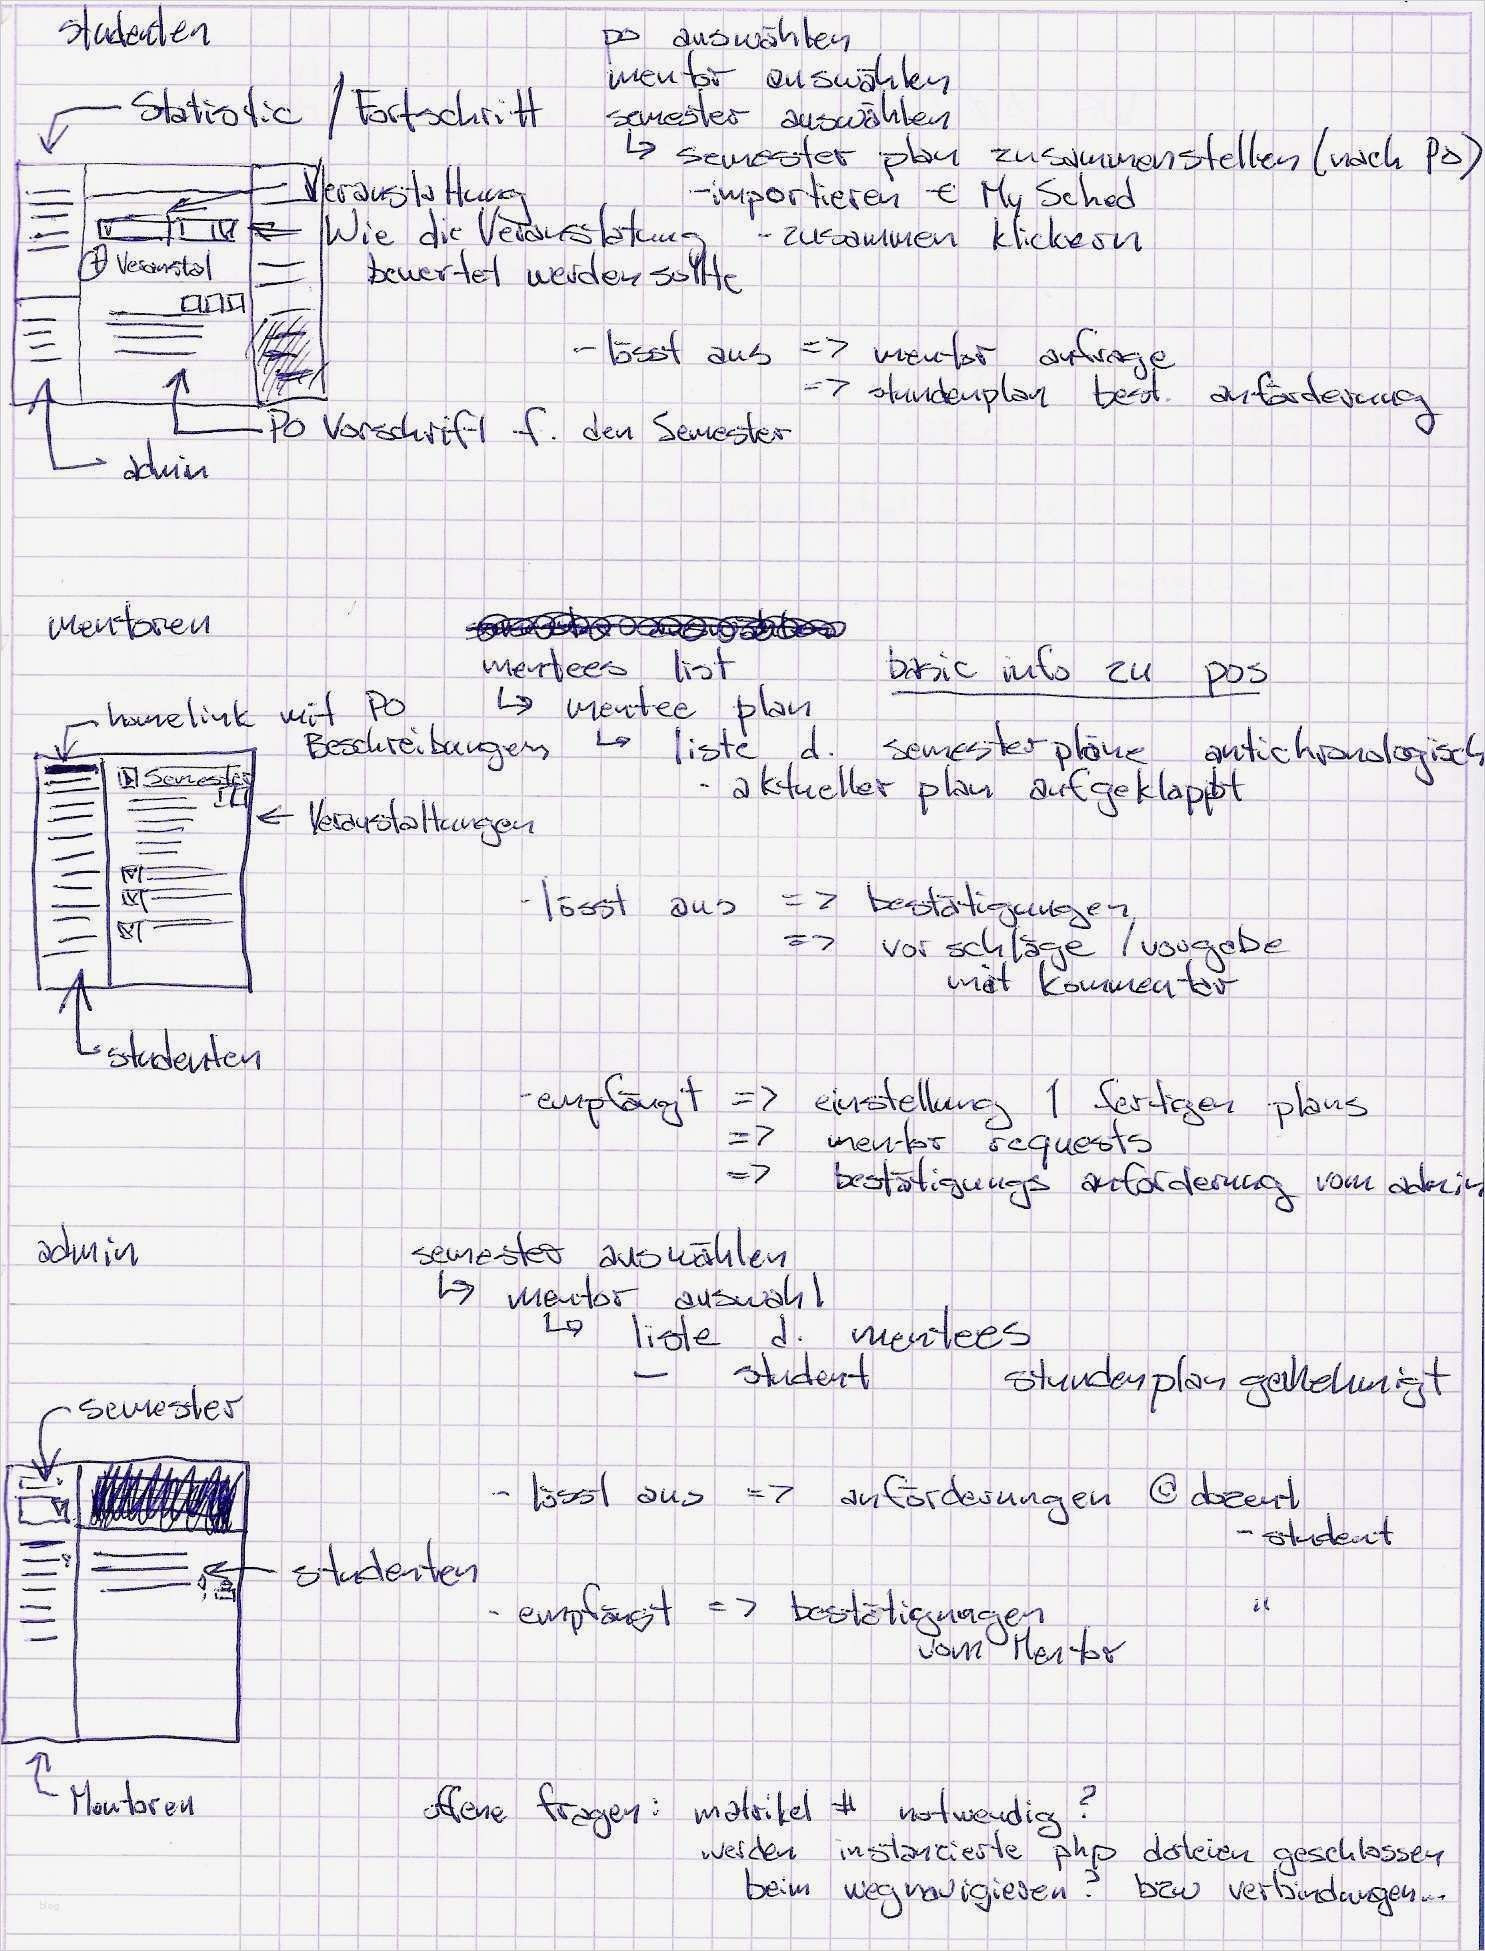 studenten
po auswählen
mentor auswählen
Statistic / Fortschritt
semester auswählen
↳ semester plan zusammenstellen (nach PO)
Veranstaltung
-importieren € My Sched
Wie die Veranstatung
- zusammen klickern
⊕ Veranstal
bewertet werden sollte
- lösst aus => mentor anfrage
=> stundenplan best. anförderung
PO Vorschrift f. den Semester
admin
mentoren
mentees list
basic info zu pos
homelink mit PO
↳ mentee plan
Beschreibungen
↳ liste d. semesterpläne antichronologisch
- aktueller plan aufgeklappt
Semester
Veranstaltungen
- lösst aus => bestätigungen
=> vorschläge / vorgebe
mit kommentar
studenten
- empfängt => einstellung 1 fertigen plans
=> mentor requests
=> bestätigungs anforderung vom admin
admin
semester auswählen
↳ mentor auswahl
↳ liste d. mentees
— student stundenplan genehmigt
semester
- lösst aus => anförderungen @ dozent
- student
studenten
- empfängt => bestätigungen "
vom Mentor
Mentoren
offene fragen: matrikel # notwendig?
werden instanzierte php dateien geschlossen
beim wegnavigieren? bzw verbindungen...
blog